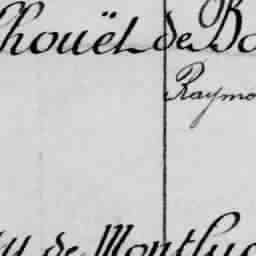 houët de Bo
Raymo
y de Montlu